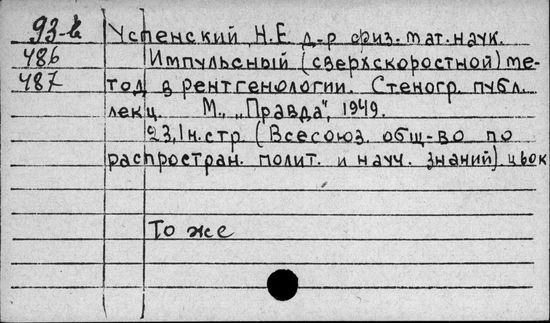 93-6 Успенский Н.Е. д-р физ.-мат. наук.
486 Импульсный (сверхскоростной) ме-
487 тод в рентгенологии. Стеногр. публ.
лекц. М., „Правда", 1949.
23, 1н. стр. (Всесоюз. общ-во по
распростран. полит. и науч. знаний).
То же